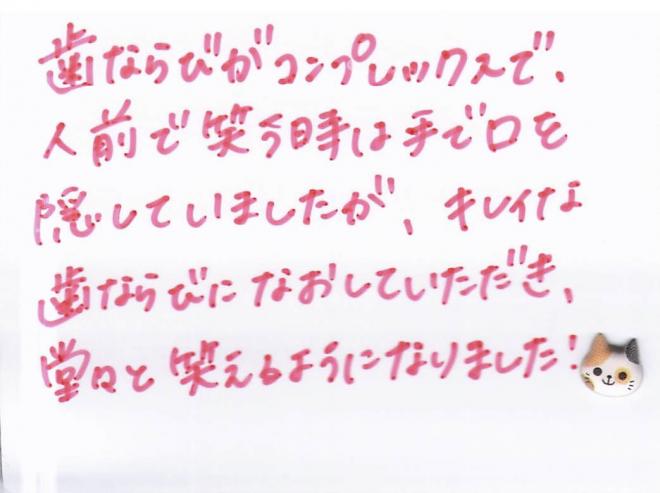 歯ならびがコンプレックスで、
人前で笑う時は手で口を
隠していましたが、キレイな
歯ならびになおしていただき、
堂々と笑えるようになりました!